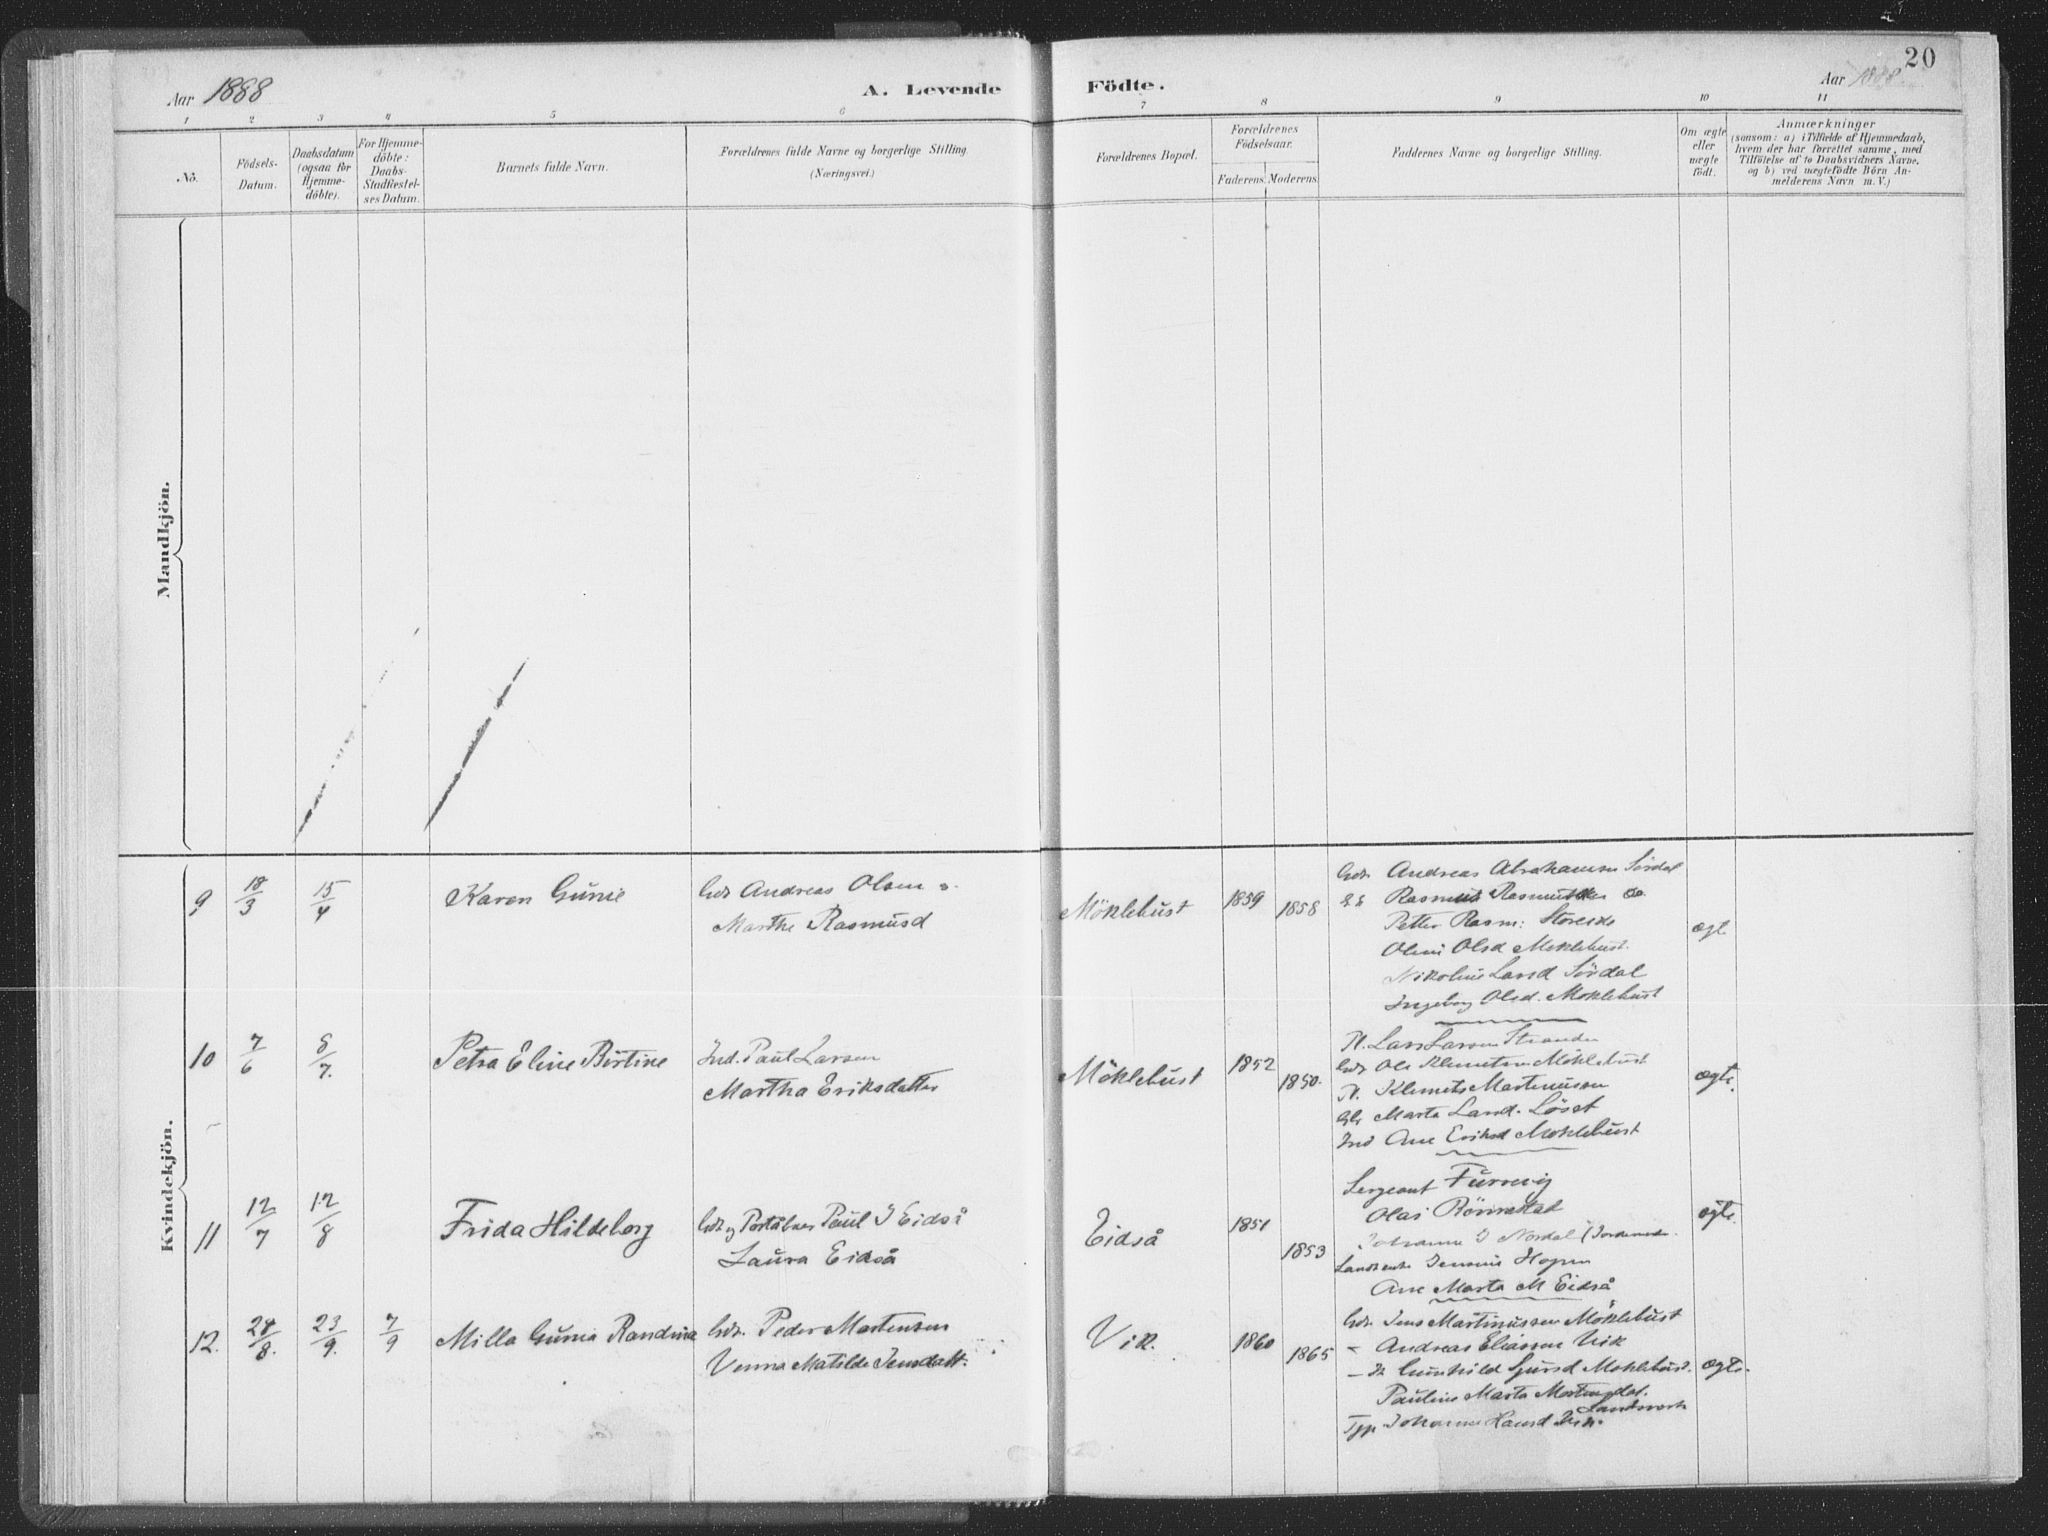 20
Aar 1888 A. Levende Födte. Aar 1888
1 2 3 4 5 6 7 8 9 10 11
No.
Födsels-
Datum.
Daabsdatum
(ogsaa for
Hjemme-
döbte).
For Hjemme-
döbte:
Daabs-
Stadfestel-
ses Datum.
Barnets fulde Navn.
Forældrenes fulde Navne og borgerlige Stilling.
(Næringsvei.)
Forældrenes Bopæl.
Forældrenes
Födselsaar.
Faderens. Moderens.
Faddernes Navne og borgerlige Stilling.
Om ægte
eller
uægte
födt.
Anmærkninger
(saasom: a) i Tilfælde af Hjemmedaab,
hvem der har forrettet samme, med
Tilföielse af to Daabsvidners Navne,
og b) ved uægtefödte Börn An-
melderens Navn m. V.)
Mandkjön.
Kvindekjön.
9 18/3 15/4 Karen Gunie
Andreas Olsen
Marthe Rasmusd
Möklebust 1859 1858
Andreas Abrahamsen Sördal
Rasmus
Petter Rasm:
Olsd Moklebust
Larsd Sördal
Ingeborg Olsd. Moklebust
ægt
10 7/6 8/7. Petra Eline Birtine
Ind. Paul Larsen
Martha Eriksdatter
Möklebust 1852 1850.
Lars Larsen Stranden
Ole Klemetsen Möklebust
Klemets Martinusen
Marta Larsd. Löset
Ind Ane Eriksd Moklebust
ægte.
11 12/7 12/8 Frida Hildeborg
Paul I Eidså
Laura Eidså
Eidså 1851 1853
Sergeant Furrevig
Olai Rönnestad
Johanne I Nordal
Hopen
Ane Marta M Eidså
ægte.
12. 28/8. 23/9. 7/9 Milla Guria Randina
Peder Martensen
Venna Matilde Jensdatt.
Vik. 1860 1865
Jens Martinussen Möklebust
Andreas Eliassen Vik
Gunhild Moklebust.
Pauline Marta
Johanne Hansd
ægte.